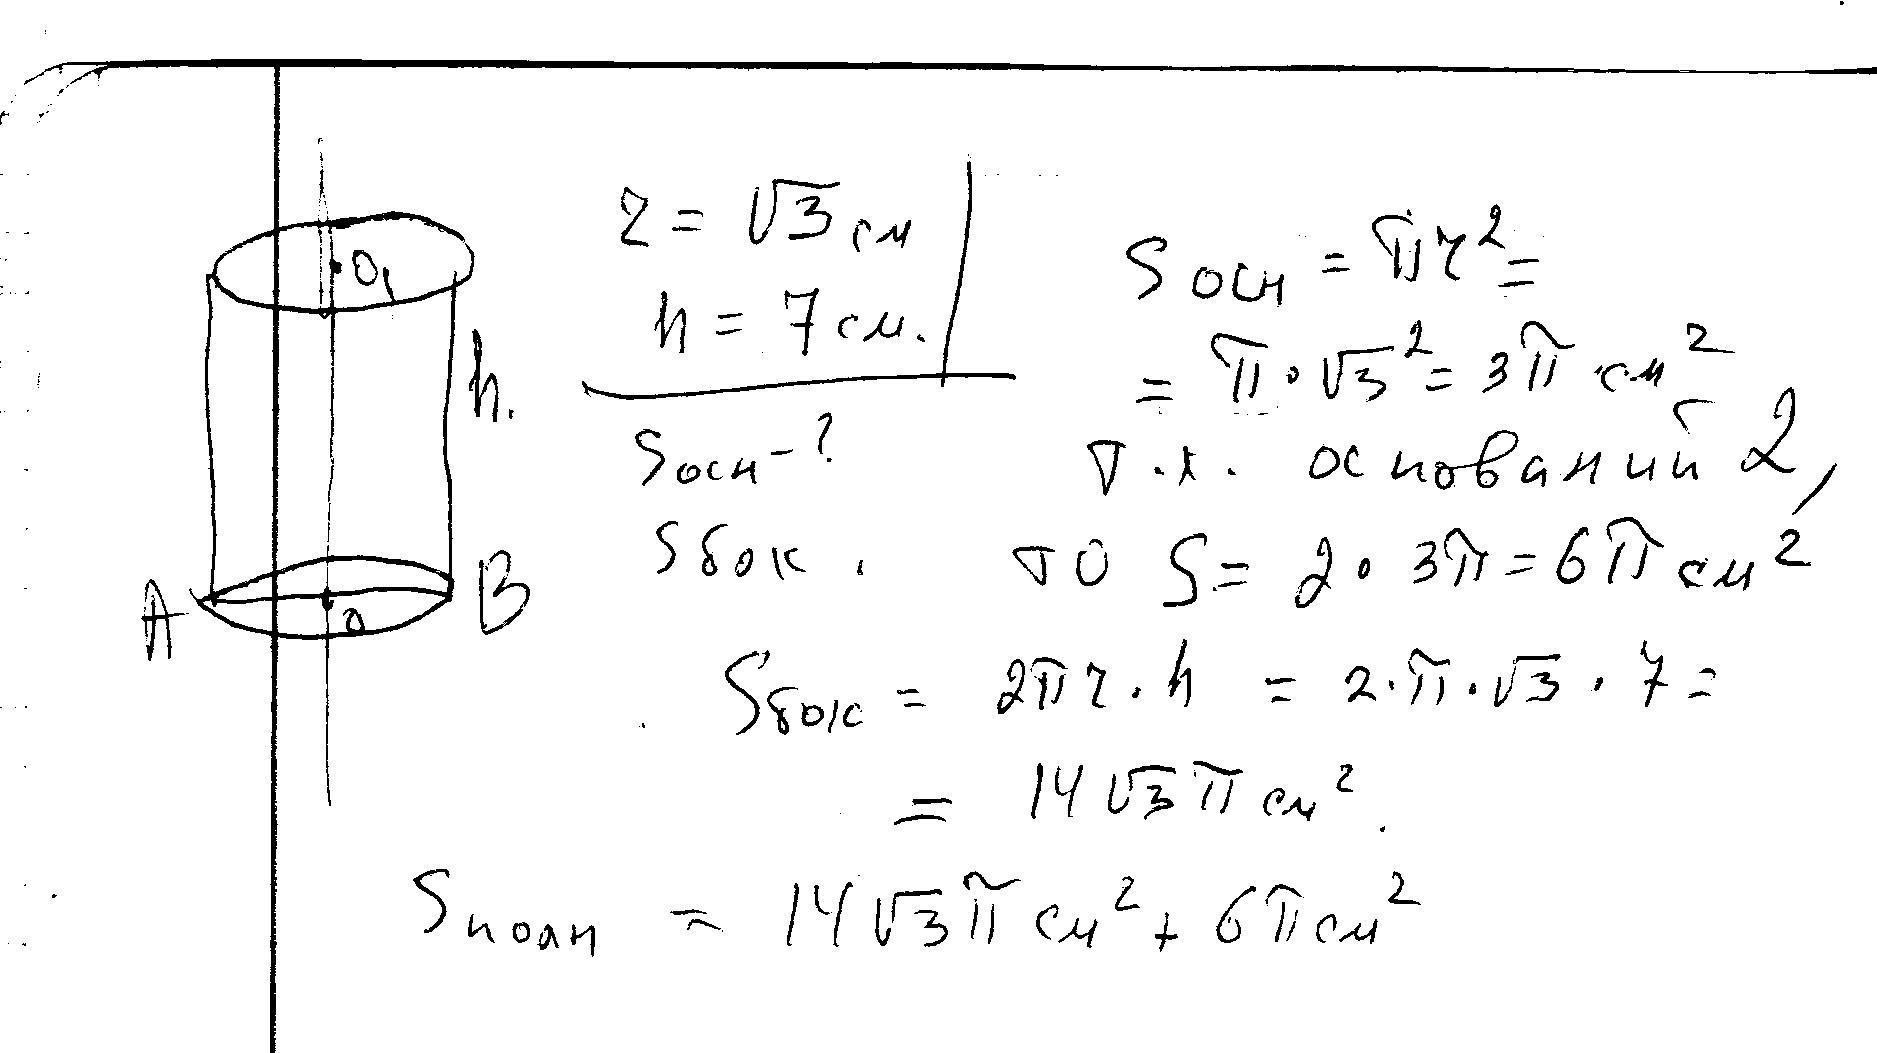 r = √3 см
h = 7 см.
Sосн - ?
Sбок.
O₁
h.
A
O
B
Sосн = πr² =
= π · √3² = 3π см²
т.к. оснований 2,
то S = 2 · 3π = 6π см²
Sбок = 2πr · h = 2 · π · √3 · 7 =
= 14√3π см².
Sполн = 14√3π см² + 6π см²